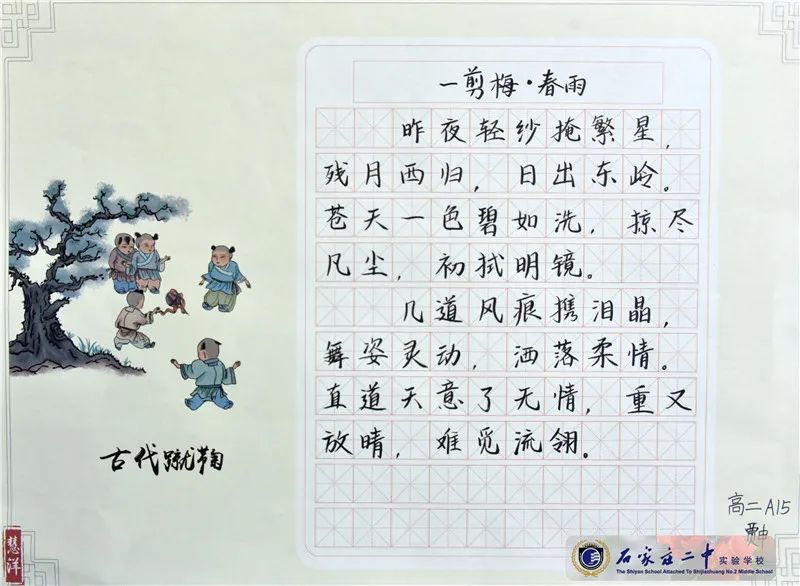 一剪梅·春雨
昨夜轻纱掩繁星，
残月西归，日出东岭。
苍天一色碧如洗，掠尽
凡尘，初拭明镜。
几道风痕携泪晶，
舞姿灵动，洒落柔情。
直道天意了无情，重又
放晴，难觅流翎。
古代蹴鞠
高二A15
慧洋
石家庄二中实验学校
The Shiyan School Attached To Shijiazhuang No.2 Middle School